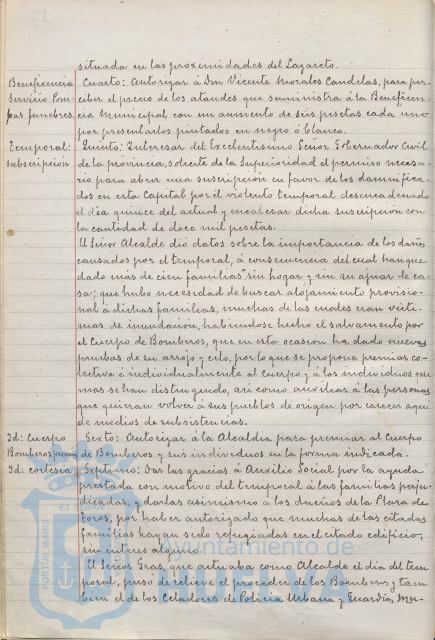 situada en las proximidades del Lazareto.
Beneficencia
Servicio Pom-
pas fúnebres.
Cuarto: Autorizar á Don Vicente Morales Candelas, para per-
cibir el precio de los ataudes que suministra á la Beneficen-
cia Municipal con un aumento de seis pesetas cada uno
por presentarlos pintados en negro ó blanco.
Temporal:
subscripción
Quinto: Interesar del Excelentísimo Señor Gobernador Civil
de la provincia, solicite de la Superioridad el permiso necesa-
rio para abrir una suscripción en favor de los damnifica-
dos en esta Capital por el violento temporal desencadenado
el día quince del actual y encabezar dicha suscripción con
la cantidad de doce mil pesetas.
El Señor Alcalde dió datos sobre la importancia de los daños
causados por el temporal, á consecuencia del cual han que-
dado más de cien familias sin hogar y sin su ajuar de ca-
sa; que hubo necesidad de buscar alojamiento provisio-
nal á dichas familias, muchas de las cuales eran vícti-
mas de inundación, habiéndose hecho el salvamento por
el Cuerpo de Bomberos, que en esta ocasión ha dado nuevas
pruebas de su arrojo y celo, por lo que se propone premiar co-
lectiva é individualmente al Cuerpo y á los individuos que
mas se han distinguido, así como auxiliar á las personas
que quieran volver á sus pueblos de origen por carecer aquí
de medios de subsistencias.
Id: Cuerpo
Bomberos
Sexto: Autorizar á la Alcaldía para premiar al Cuerpo
de Bomberos y sus individuos en la forma indicada.
Id: cortesía
Septimo: Dar las gracias á Auxilio Social por la ayuda
prestada con motivo del temporal á las familias perju-
dicadas, y darlas asimismo á los dueños de la Plaza de
Toros, por haber autorizado que muchas de las citadas
familias hayan sido refugiadas en el citado edificio,
sin interes alguno.
El Señor Gras, que actuaba como Alcalde el día del tem-
poral, puso de relieve el proceder de los Bomberos y tam-
bien el de los Celadores de Policía Urbana y Guardias Mu-
Ayuntamiento de
PORTUS MARIS